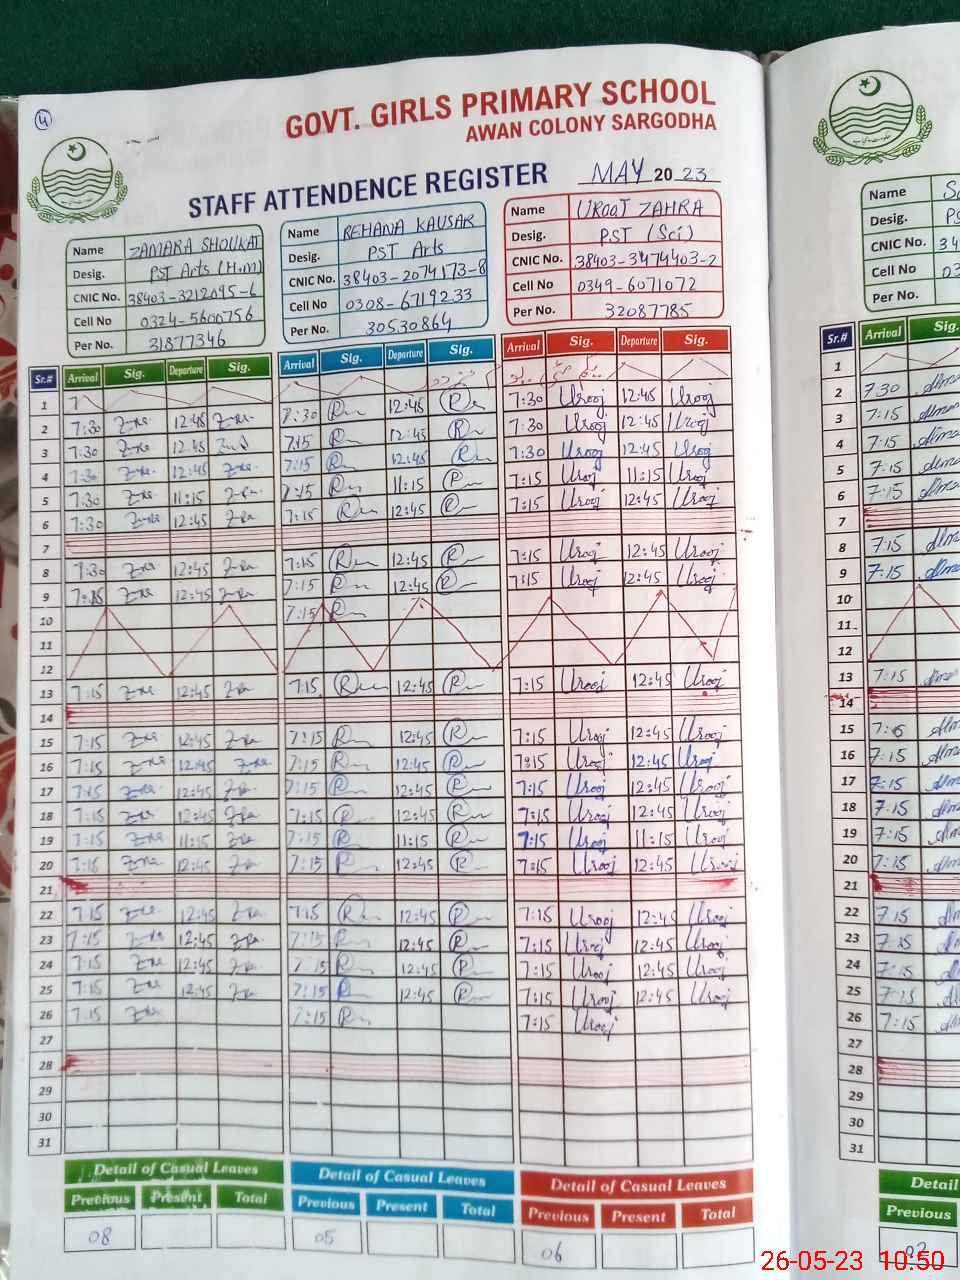 4
GOVT. GIRLS PRIMARY SCHOOL
AWAN COLONY SARGODHA
STAFF ATTENDENCE REGISTER MAY 2023
Name ZAMARA SHOUKAT
Desig. PST Arts (H.M)
CNIC No. 38403-3212095-6
Cell No 0324-5600756
Per No. 31877346
Name REHANA KAUSAR
Desig. PST Arts
CNIC No. 38403-2074173-8
Cell No 0308-6719233
Per No. 30530864
Name UROOJ ZAHRA
Desig. PST (Sci)
CNIC No. 38403-3474403-2
Cell No 0349-6071072
Per No. 32087785
Name
Desig.
CNIC No. 34
Cell No 03
Per No.
Sr.# Arrival Sig. Departure Sig. Arrival Sig. Departure Sig. Arrival Sig. Departure Sig. Sr.# Arrival Sig.
1 1
2 7:30 12:45 7:30 12:45 7:30 Urooj 12:45 Urooj 2 7:30
3 7:30 12:45 7:15 12:45 7:30 Urooj 12:45 Urooj 3 7:15
4 7:30 12:45 7:15 12:45 7:30 Urooj 12:45 Urooj 4 7:15
5 7:30 11:15 7:15 11:15 7:15 Urooj 11:15 Urooj 5 7:15
6 7:30 12:45 7:15 12:45 7:15 Urooj 12:45 Urooj 6 7:15
7 7
8 7:30 12:45 7:15 12:45 7:15 Urooj 12:45 Urooj 8 7:15
9 7:15 12:45 7:15 12:45 7:15 Urooj 12:45 Urooj 9 7:15
10 7:15 10
11 11
12 12
13 7:15 12:45 7:15 12:45 7:15 Urooj 12:45 Urooj 13 7:15
14 14
15 7:15 12:45 7:15 12:45 7:15 Urooj 12:45 Urooj 15
16 7:15 12:45 7:15 12:45 7:15 Urooj 12:45 Urooj 16 7:15
17 7:15 12:45 7:15 12:45 7:15 Urooj 12:45 Urooj 17 7:15
18 7:15 12:45 7:15 12:45 7:15 Urooj 12:45 Urooj 18 7:15
19 7:15 11:15 7:15 11:15 7:15 Urooj 11:15 Urooj 19 7:15
20 7:15 12:45 7:15 12:45 7:15 Urooj 12:45 Urooj 20 7:15
21 21
22 7:15 12:45 7:15 12:45 7:15 Urooj 12:45 Urooj 22 7:15
23 7:15 12:45 7:15 12:45 7:15 Urooj 12:45 Urooj 23 7:15
24 7:15 12:45 7:15 12:45 7:15 Urooj 12:45 Urooj 24 7:15
25 7:15 12:45 7:15 12:45 7:15 Urooj 12:45 Urooj 25 7:15
26 7:15 7:15 7:15 Urooj 26 7:15
27 27
28 28
29 29
30 30
31 31
Detail of Casual Leaves Detail of Casual Leaves Detail of Casual Leaves Detail
Previous Present Total Previous Present Total Previous Present Total Previous
08 05 06 02
26-05-23 10:50